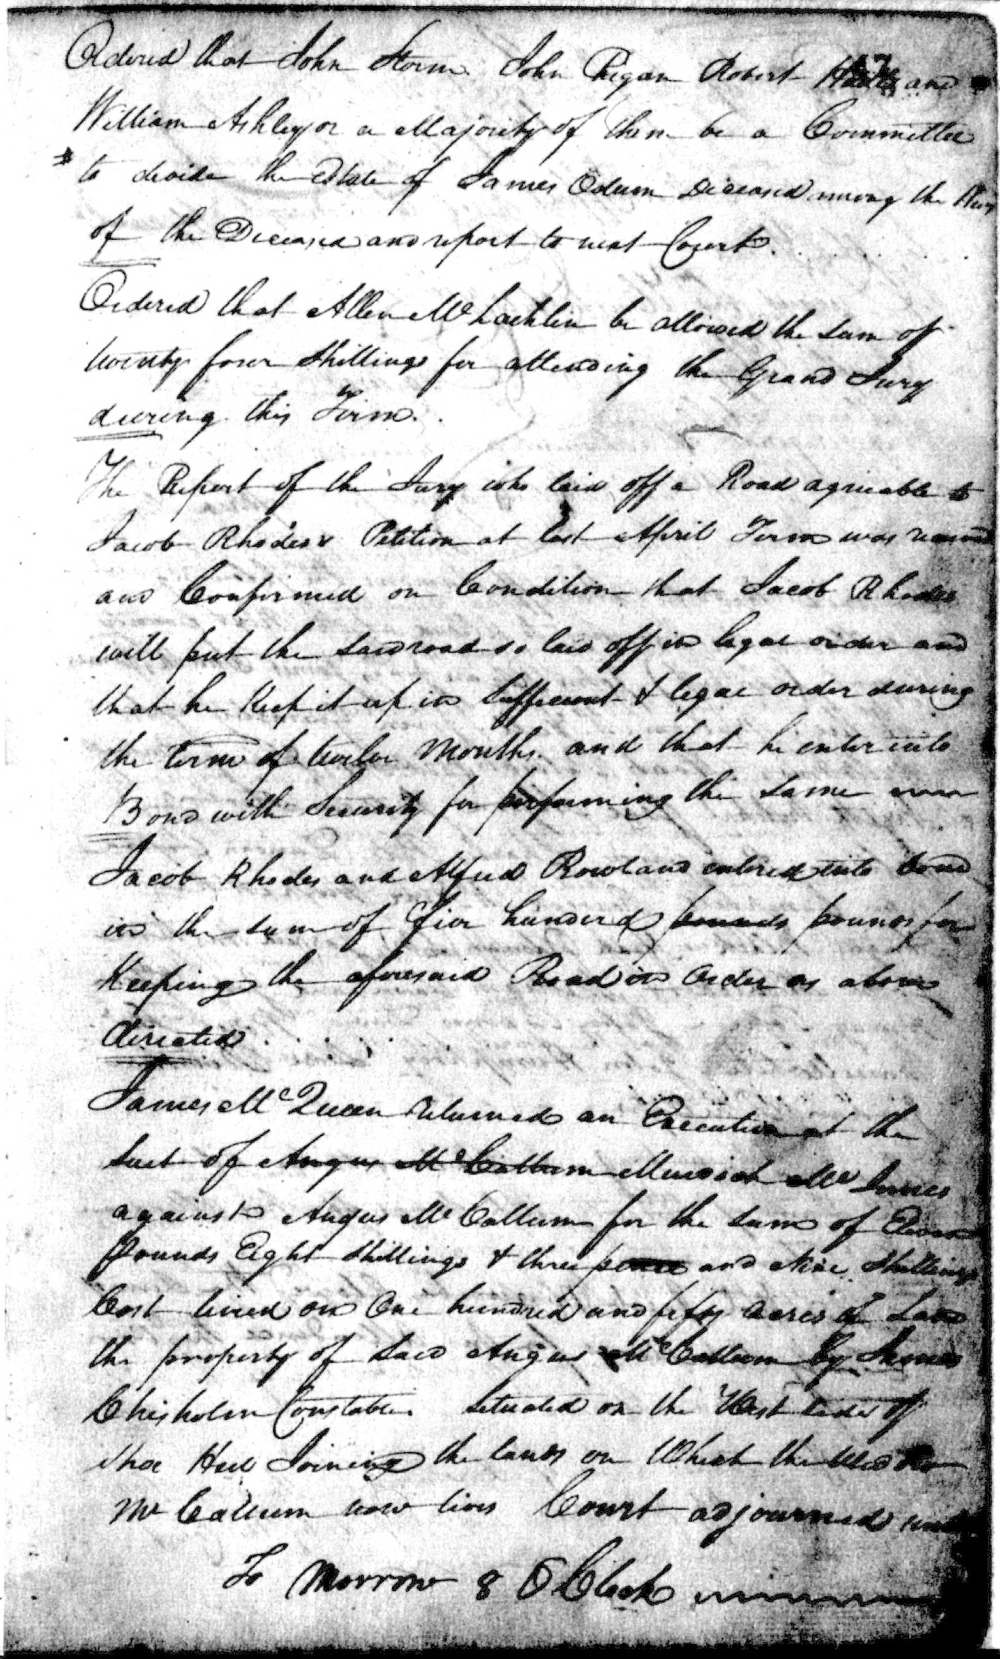 Ordered that John Storm John Regan Robert and
William Ashley or a Majority of them be a Committee
to devide the Estate of James Odum Deceased among the Heirs
of the Deceased and report to next Court
Ordered that Allen Mc Lachlin be allowed the sum of
twenty four Shillings for attending the Grand Jury
dureing this Term.
The Report of the Jury who laid off a Road agreeable to
Jacob Rhodes's Petition at last April Term was
and Confirmed on Condition that Jacob Rhodes
will put the said road so laid off in legal order and
that he Keep it up in Sufficient & legal order during
the term of twelve Months. and that he enter into
Bond with Security for performing the same
Jacob Rhodes and Alfred Rowland entered into bond
in the sum of five hundred pounds pounds for
Keeping the aforesaid Road in order as above
directed
James Mc Queen returned an Execution at the
Suit of Angus Mc Callum Murdoch Mc Innes
against Angus Mc Callum for the sum of Eleven
Pounds Eight Shillings & three pence and Nine Shillings
Cost levied on One hundred and fifty acres of Land
the property of said Angus Mc Callum By James
Chisholm Constable. Situated on the West side of
Hill Joining the lands on Which the
Mc Callum now lives Court adjourned until
To Morrow 8 O Clock